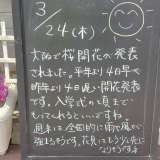 3/24(木)
大阪で桜開花の発表
されました。平年より4日早く
昨年より4日遅い開花発表
です。入学式の頃まで
もってくれるといいですね
週末は全国的に雨や風が
強まりそうです。花見にはもう少し先に
なりそうです